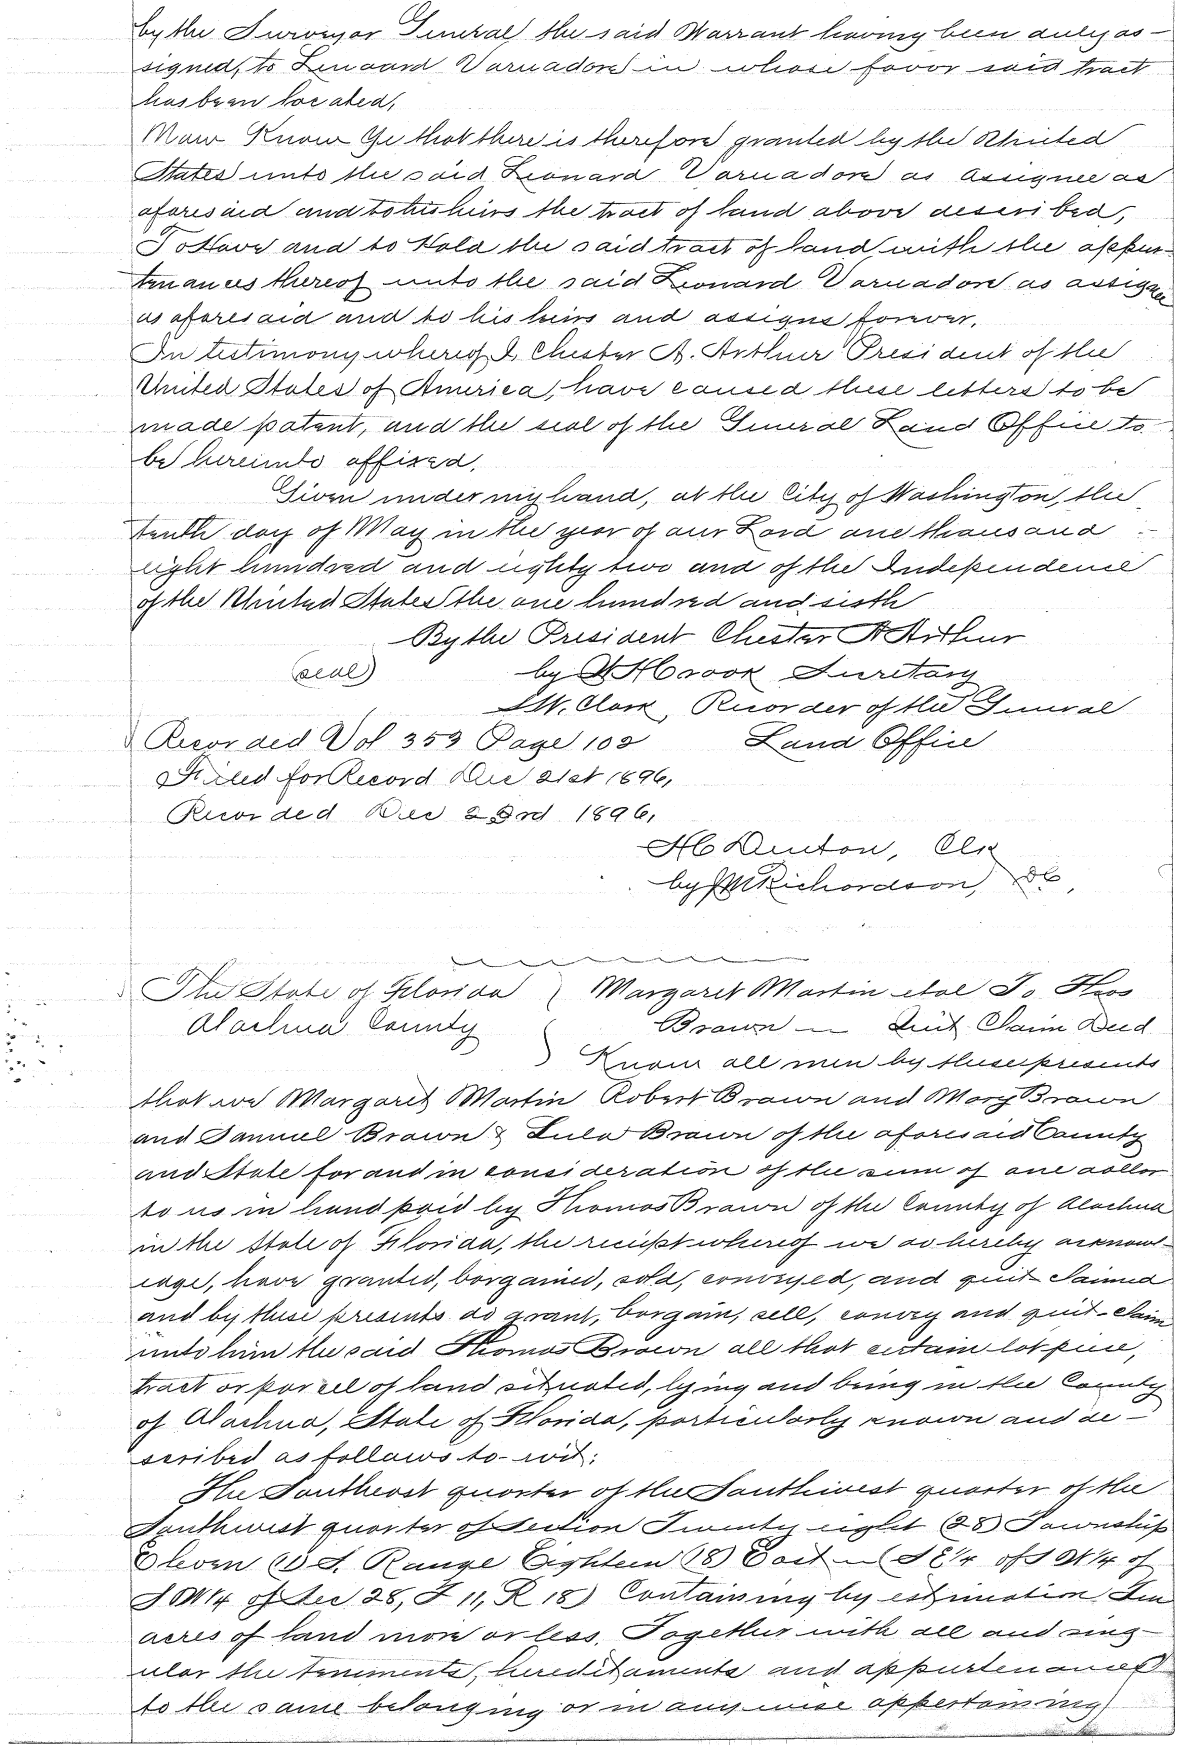 by the Surveyor General the said Warrant having been duly as-
signed, to Lenoard Varnadore in whose favor said tract
has been located,
Now Know Ye that there is therefore granted by the United
States unto the said Leonard Varnadore as assignee as
aforesaid and to his heirs the tract of land above described,
To Have and to Hold the said tract of land, with the appur-
tenances thereof unto the said Leonard Varnadore as assignee
as aforesaid and to his heirs and assigns forever.
In testimony whereof I, Chester A. Arthur President of the
United States of America, have caused these letters to be
made patent, and the seal of the General Land Office to
be hereunto affixed.
Given under my hand, at the City of Washington, the
tenth day of May in the year of our Lord one thousand
eight hundred and eighty two and of the Independence
of the United States the one hundred and sixth
By the President Chester A Arthur
(seal) by Crook Secretary
S.W. Clark, Recorder of the General
Recorded Vol 353 Page 102 Land Office
Filed for Record Dec 21st 1896,
Recorded Dec 23rd 1896,
H C Denton, Clk
by Richardson, DC,
The State of Florida } Margaret Martin etal To Thos
Alachua County } Brown — Quit Claim Deed
} Know all men by these presents
that we Margaret Martin Robert Brown and Mary Brown
and Samuel Brown & Lula Brown of the aforesaid County
and State for and in consideration of the sum of one dollar
to us in hand paid by Thomas Brown of the County of Alachua
in the State of Florida, the reciept whereof we do hereby acknowl-
edge, have granted, bargained, sold, conveyed, and quit-claimed
and by these presents do grant, bargain, sell, convey and quit-claim
unto him the said Thomas Brown all that certain lot piece,
tract or parcel of land situated, lying and being in the County
of Alachua, State of Florida, particularly known and de-
scribed as follows to-wit:
The Southeast quarter of the Southwest quarter of the
Southwest quarter of Section Twenty eight (28) Township
Eleven (11) S. Range Eighteen (18) East — (S E 1/4 of S W 1/4 of
S W 1/4 of Sec 28, T 11, R 18) Containing by estimation Ten
acres of land more or less. Together with all and sing-
ular the teniments, hereditaments and appurtenances
to the same belonging or in anywise appertaining